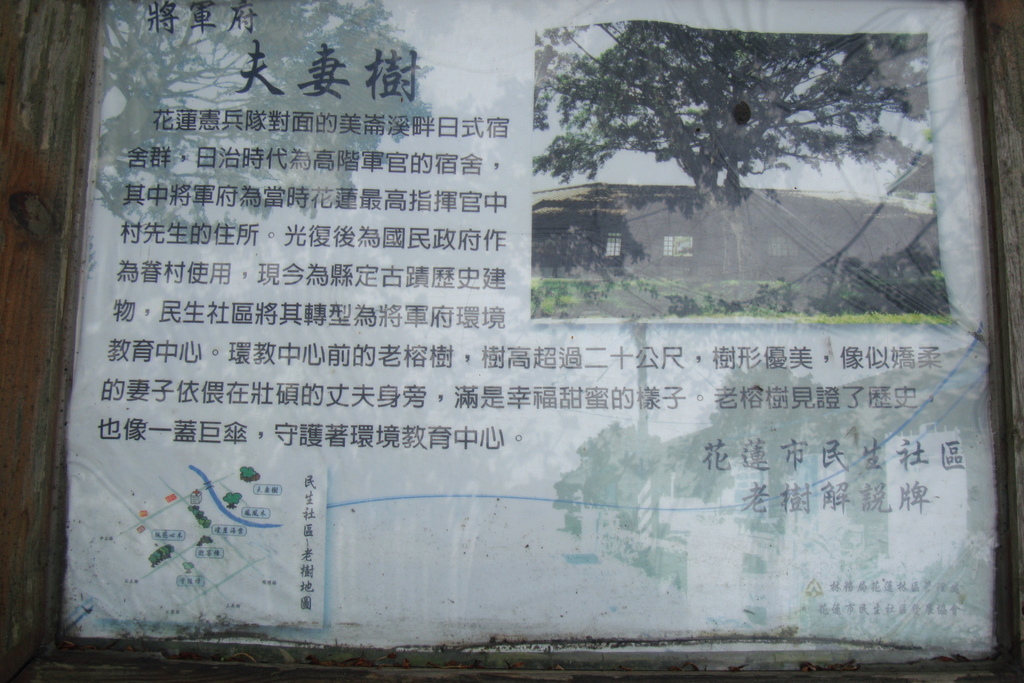 將軍府
夫妻樹
花蓮憲兵隊對面的美崙溪畔日式宿
舍群，日治時代為高階軍官的宿舍，
其中將軍府為當時花蓮最高指揮官中
村先生的住所。光復後為國民政府作
為眷村使用，現今為縣定古蹟歷史建
物，民生社區將其轉型為將軍府環境
教育中心。環教中心前的老榕樹，樹高超過二十公尺，樹形優美，像似嬌柔
的妻子依偎在壯碩的丈夫身旁，滿是幸福甜蜜的樣子。老榕樹見證了歷史。
也像一蓋巨傘，守護著環境教育中心。
花蓮市民生社區
老樹解說牌
民生社區老樹地圖
夫妻樹
鳳凰木
林務局花蓮林區
花蓮市民生社區發展協會